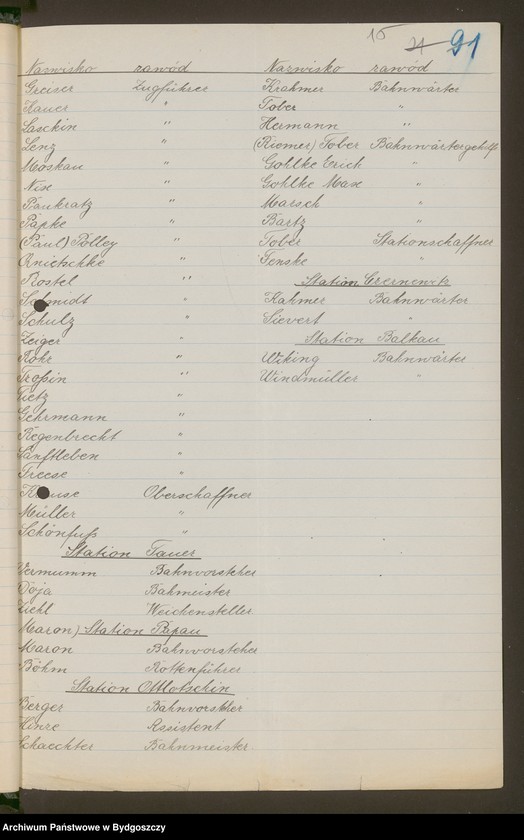 15 21 91
Nazwisko zawód
Greiser Zugführer
Hauer "
Laschin "
Lenz "
Moskau "
Nixe "
Pankratz "
Papke "
(Paul) Polley "
Rnietschke "
Rostel "
Schmidt "
Schulz "
Zeiger "
Rohr "
Troßin "
Tietz "
Gehrmann "
Regenbrecht "
Sanftleben "
Treese "
Krause Oberschaffner
Müller "
Schönfuß "
Station Tauer
Vermumm Bahnvorsteher
Doja Bahmeister
Ziehl Weichensteller
Maron) Station Papau
Maron Bahnvorsteher
Böhm Rottenführer
Station Ottlotschin
Berger Bahnvorsteher
Hinze Assistent
Schaechter Bahnmeister
Nazwisko zawód
Krahmer Bahnwärter
Tober "
Hermann "
(Riemer) Tober Bahnwärtergehilf
Gohlke Erich "
Gohlke Max "
Marsch "
Bartz "
Tober Stationschaffner
Tenske "
Station Czernewitz
Kahmer Bahnwärter
Sievert "
Station Balkau
Wiking Bahnwärter
Windmüller "
Archiwum Państwowe w Bydgoszczy